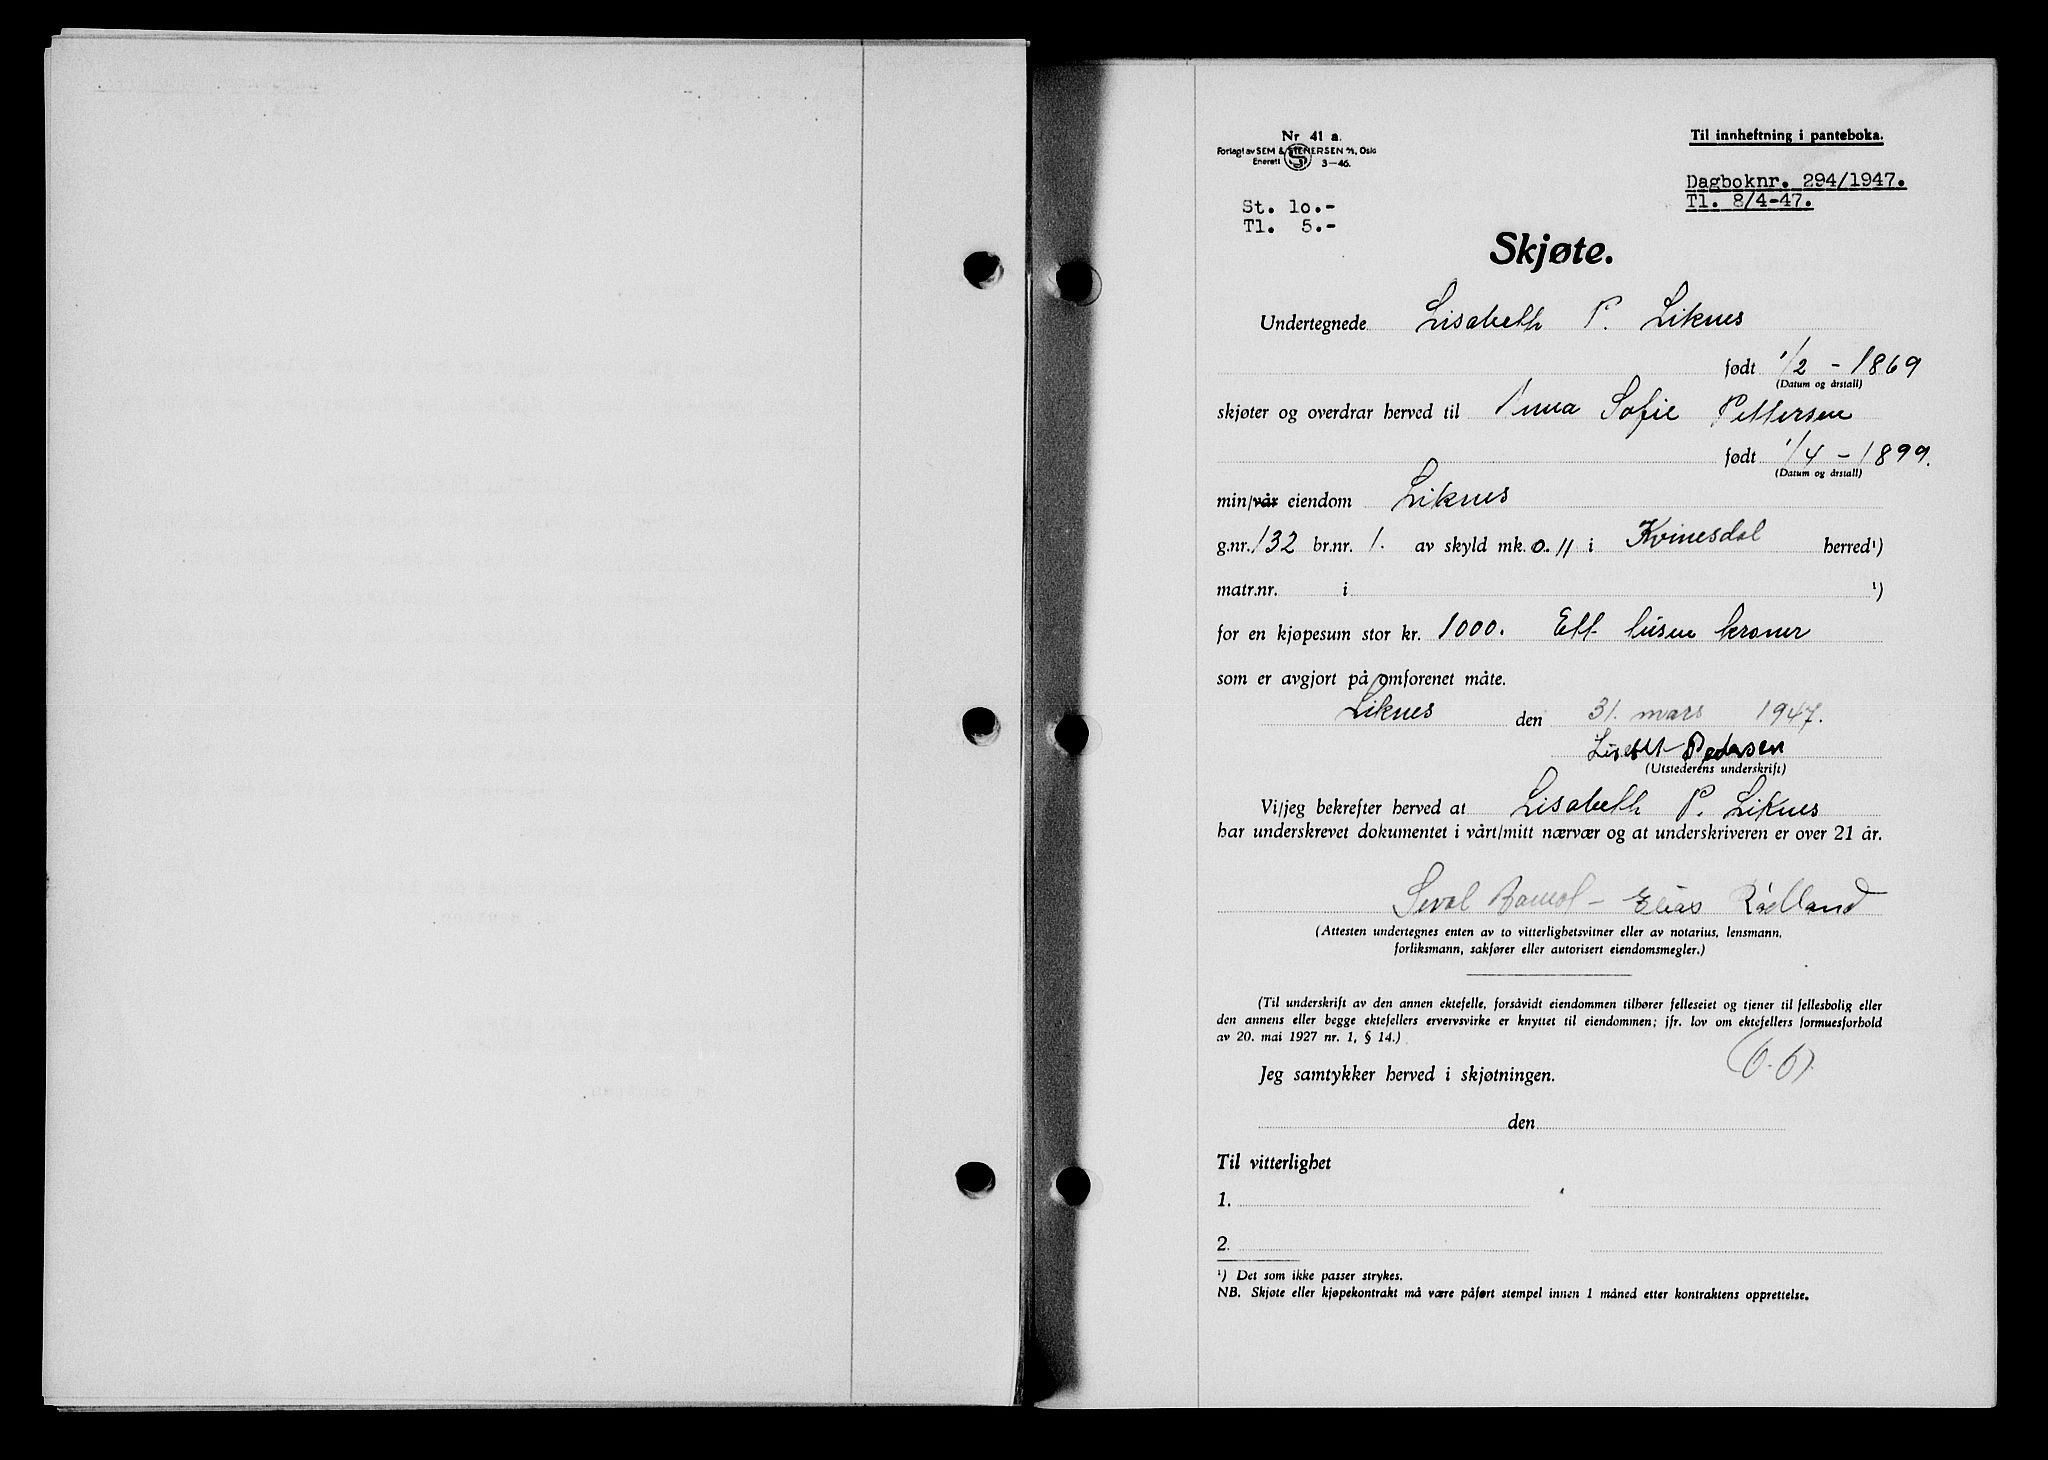 Nr. 41 a.
Forlagt av SEM & STENERSEN A/S, Oslo
Enerett S 3—46.
Til innheftning i panteboka.
Dagboknr. 294/1947.
Tl. 8/4-47.
St. 10.-
Tl. 5.-
Skjøte.
Undertegnede Lisabeth P. Liknes
født 1/2 - 1869
(Datum og årstall)
skjøter og overdrar herved til Anna Sofie Pettersen
født 1/4 - 1899.
(Datum og årstall)
min/vår eiendom Liknes
g.nr. 132 br.nr. 1. av skyld mk. 0.11 i Kvinesdal herred ¹)
matr.nr. i ¹)
for en kjøpesum stor kr. 1000. Ett tusen kroner
som er avgjort på omforenet måte.
Liknes den 31. mars 1947.
Lisebt Pedersen
(Utstederens underskrift)
Vi/jeg bekrefter herved at Lisabeth P. Liknes
har underskrevet dokumentet i vårt/mitt nærvær og at underskriveren er over 21 år.
Elias Rødland
(Attesten undertegnes enten av to vitterlighetsvitner eller av notarius, lensmann,
forliksmann, sakfører eller autorisert eiendomsmegler.)
(Til underskrift av den annen ektefelle, forsåvidt eiendommen tilhører felleseiet og tjener til fellesbolig eller
den annens eller begge ektefellers ervervsvirke er knyttet til eiendommen; jfr. lov om ektefellers formuesforhold
av 20. mai 1927 nr. 1, § 14.)
Jeg samtykker herved i skjøtningen.
den
Til vitterlighet
1.
2.
¹) Det som ikke passer strykes.
NB. Skjøte eller kjøpekontrakt må være påført stempel innen 1 måned etter kontraktens opprettelse.